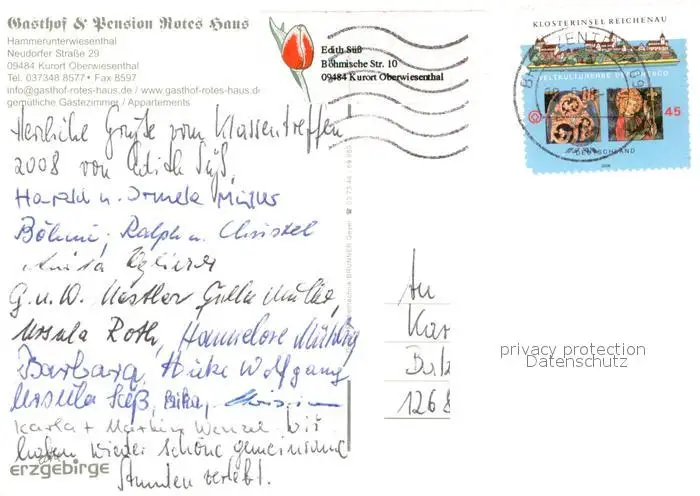 Gasthof & Pension Rotes Haus
Hammerunterwiesenthal
Neudorfer Straße 29
09484 Kurort Oberwiesenthal
Tel. 037348 8577 • Fax 8597
info@gasthof-rotes-haus.de / www.gasthof-rotes-haus.d
gemütliche Gästezimmer / Appartements
Edith Süß
Böhmische Str. 10
09484 Kurort Oberwiesenthal
KLOSTERINSEL REICHENAU
WELTKULTURERBE DER UNESCO
45
DEUTSCHLAND
Herzliche Grüße vom Klassentreffen!
2008 von Edith Süß,
Harald u. Müller
Böhme, Ralph u. Christel
Anita
G. u. W.
Ursula Roth, Hannelore
Barbara, Wolfgang
Ursula Süß,
Karla + Martin Wenzel wir
haben wieder schöne gemeinsame
Stunden verlebt.
erzgebirge
An
Kar
126
privacy protection
Datenschutz